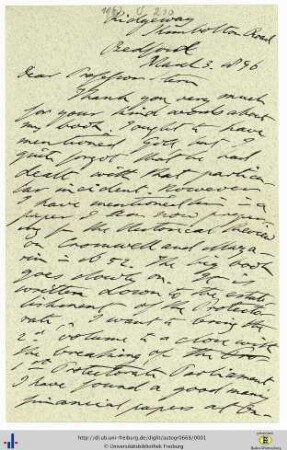 Ridgeway
Kimbolton Road
Bedford
March 3. 1896
Dear Professor Stern
Thank you very much
for your kind words about
my book. I ought to have
mentioned but I
quite forgot that he had
dealt with that particu-
lar incident. However
I have mentioned him in a
paper I am now prepar-
ing for the Historical Review
on Cromwell and Maza-
rin in 1652. The big book
goes slowly on. It is
written down to the estab-
lishment of the Protecto-
rate, I want to bring the
2nd volume to a close with
the breaking of the
1st Protectorate Parliament.
I have found a good many
financial papers at
http://dl.ub.uni-freiburg.de/diglit/autogr0668/0001
© Universitätsbibliothek Freiburg